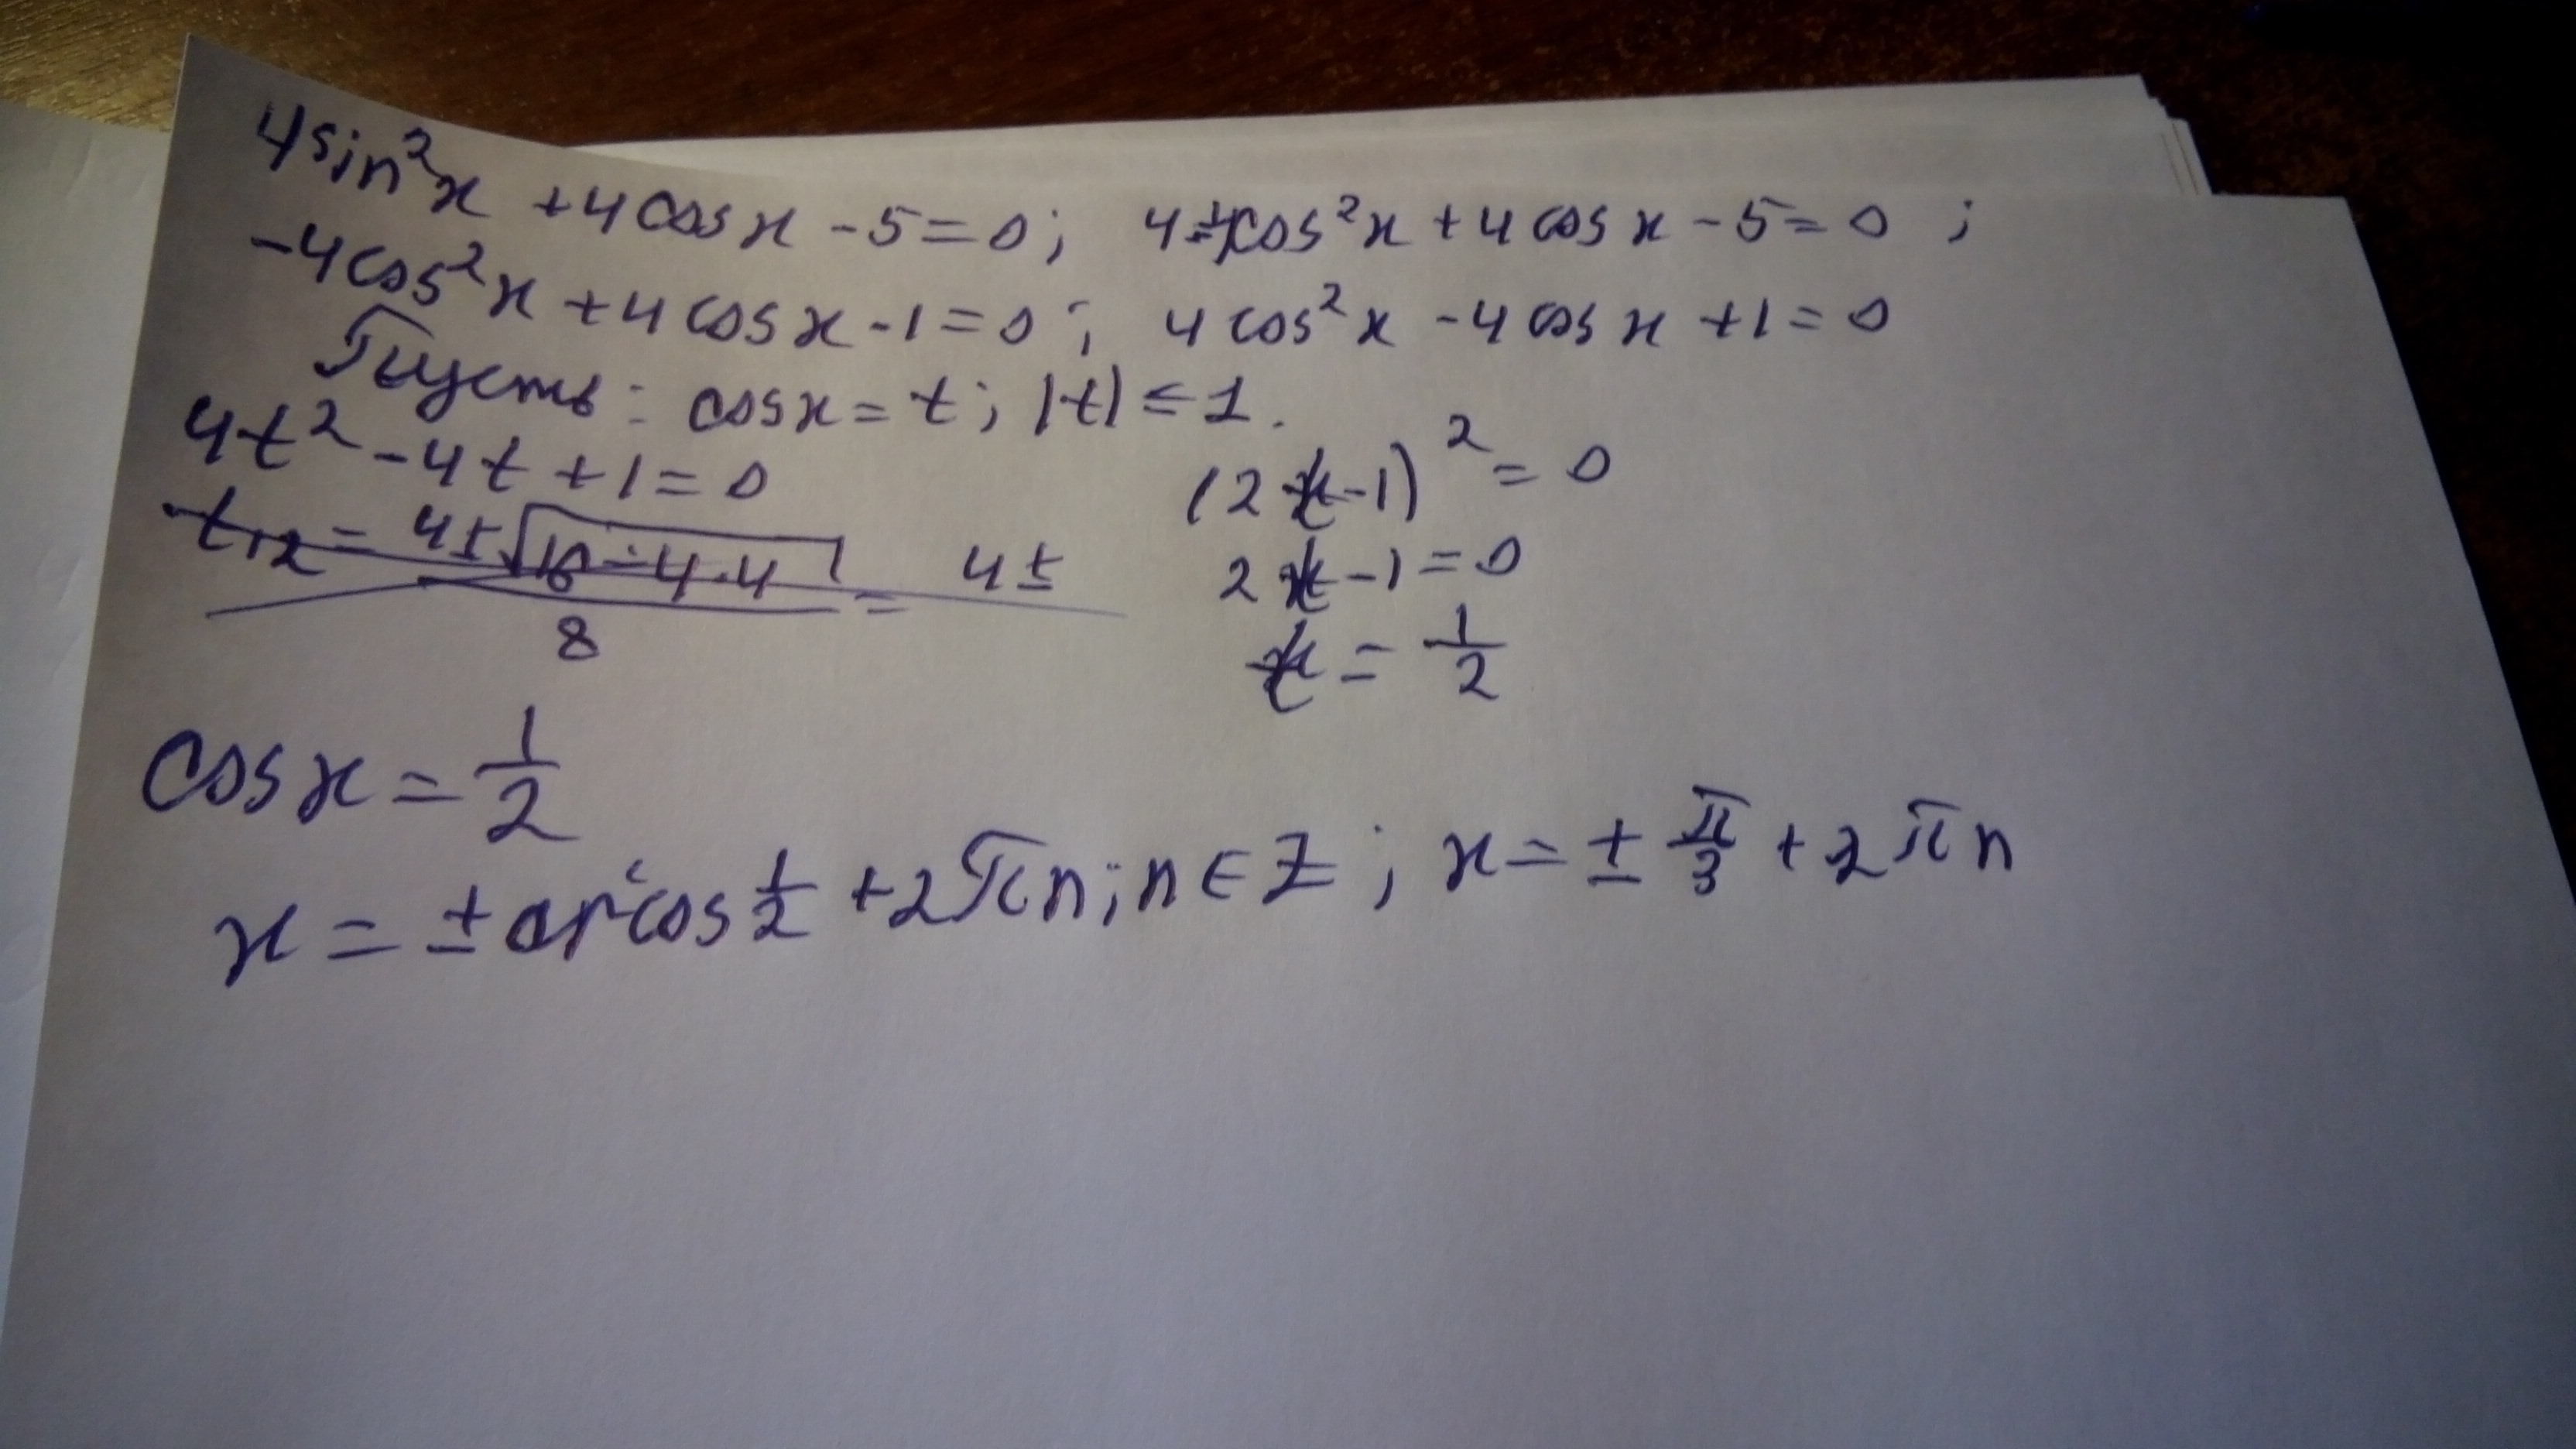 4sin²x + 4cosx - 5 = 0; 4-4cos²x + 4cosx - 5 = 0;
-4cos²x + 4cosx - 1 = 0; 4cos²x - 4cosx + 1 = 0
Пусть: cosx = t; |t| ≤ 1.
4t² - 4t + 1 = 0 (2t-1)² = 0
t₁,₂ = (4±√(16-4·4))/8 = 4± 2t-1 = 0
t = 1/2
cosx = 1/2
x = ±arccos 1/2 + 2πn; n∈Z; x = ± π/3 + 2πn